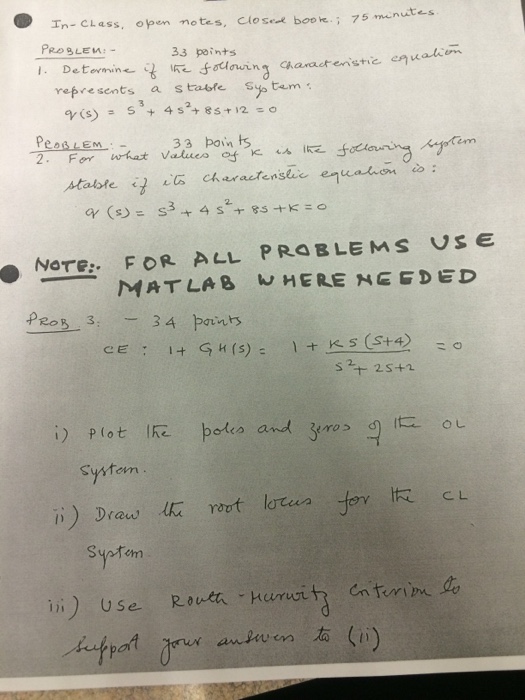 In-Class, open notes, Closed book.; 75 minutes.
PROBLEM:- 33 points
1. Determine if the following characteristic equation
represents a stable System:
q(s) = s³ + 4s² + 8s + 12 = 0
PROBLEM:- 33 points
2. For what values of K is the following system
stable if its characteristic equation is:
q(s) = s³ + 4s² + 8s + K = 0
NOTE:. FOR ALL PROBLEMS USE
MATLAB WHERE NEEDED
PROB 3: - 34 points
CE: 1+ GH(s) = 1 + KS(S+4) / S²+2S+2 = 0
i) Plot the poles and zeros of the OL
System.
ii) Draw the root locus for the CL
System
iii) Use Routh-Hurwitz Criterion to
Support your answer to (ii)